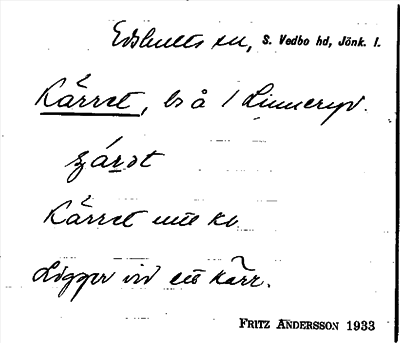 Edshults sn, S. Vedbo hd, Jönk. l.
Kärret, bs å 1 Linneryd.
Kärret
Ligger vid ett kärr.
FRITZ ANDERSSON 1933